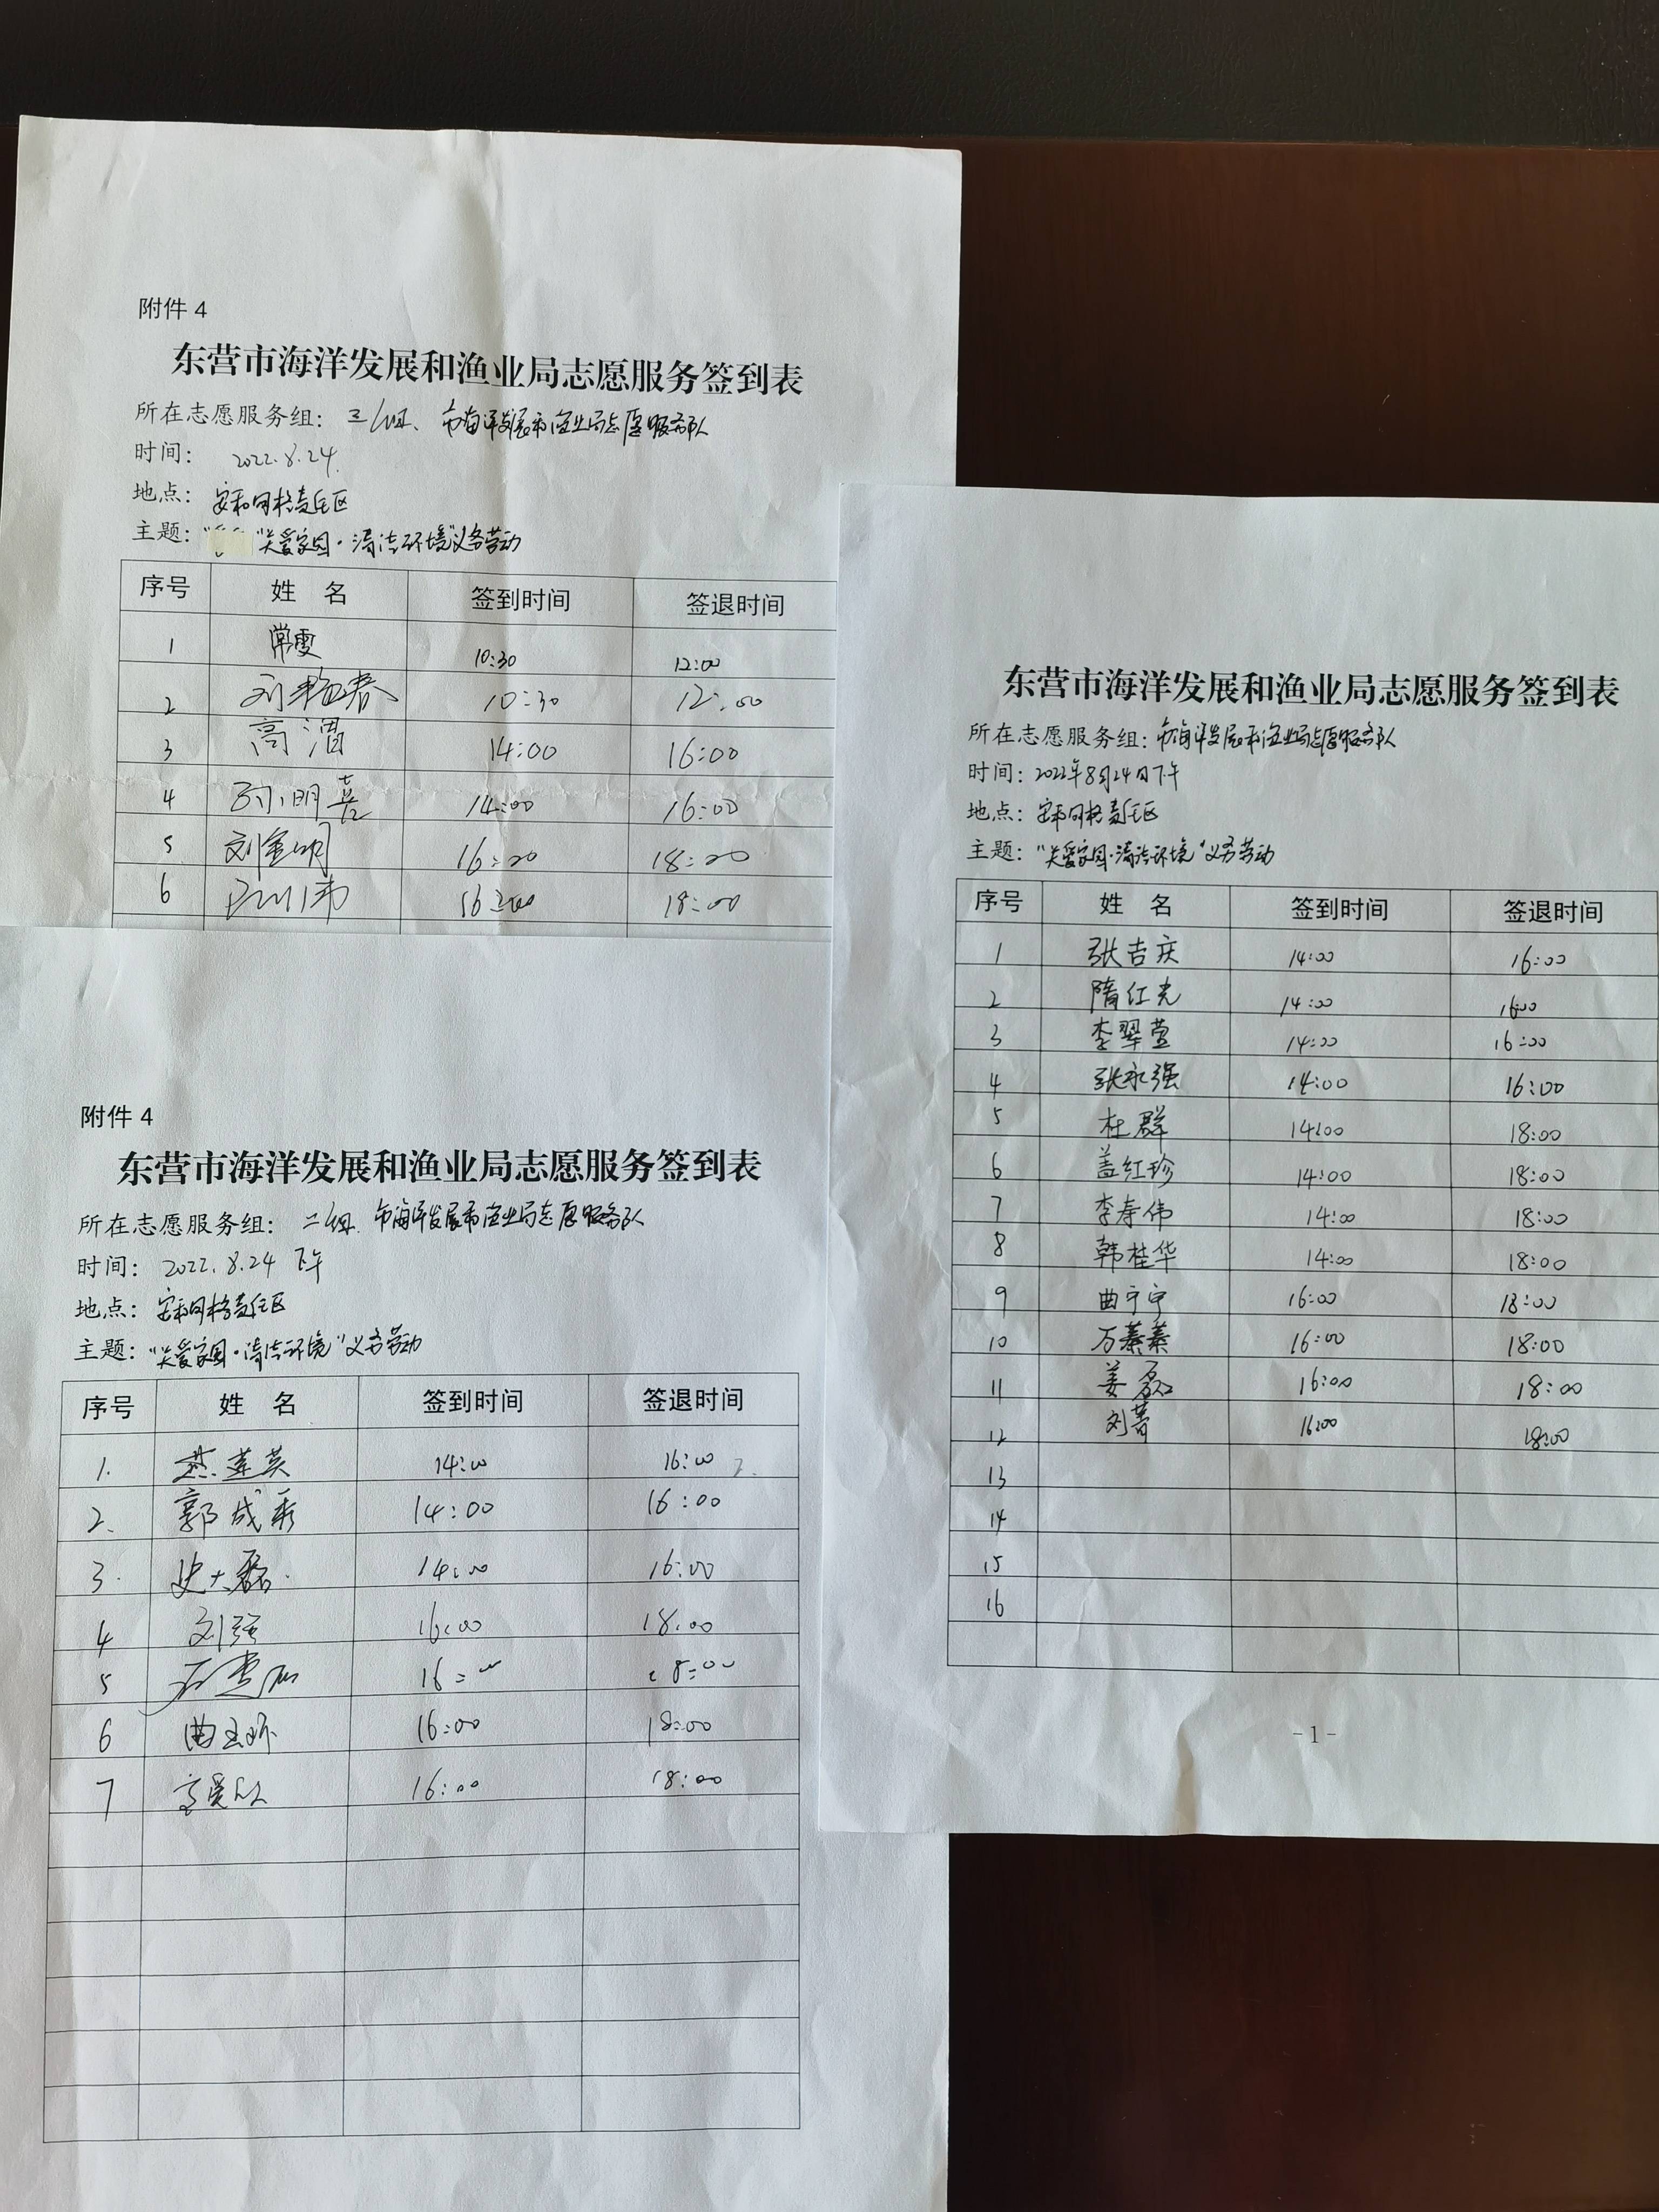 附件 4
东营市海洋发展和渔业局志愿服务签到表
所在志愿服务组： 三组、市海洋发展和渔业局志愿服务队
时间： 2022.8.24
地点： 安和网格责任区
主题： "关爱家园·清洁环境"义务劳动
序号 姓 名 签到时间 签退时间
1 常雯 10:30 12:00
2 刘艳春 10:30 12:00
3 高渭 14:00 16:00
4 明喜 14:00 16:00
5 刘金明 16:20 18:20
6 18:00
附件 4
东营市海洋发展和渔业局志愿服务签到表
所在志愿服务组： 二组 市海洋发展和渔业局志愿服务队
时间： 2022.8.24 下午
地点： 安和网格责任区
主题： "关爱家园·清洁环境"义务劳动
序号 姓 名 签到时间 签退时间
1. 燕莲英 14:00 16:00
2. 郭成秀 14:00 16:00
3. 史大磊 14:00 16:00
4 刘强 16:00 18:00
5 16:00 18:00
6 曲玉环 16:00 18:00
7 16:00 18:00
东营市海洋发展和渔业局志愿服务签到表
所在志愿服务组： 市海洋发展和渔业局志愿服务队
时间： 2022年8月24日下午
地点： 安和网格责任区
主题： "关爱家园·清洁环境"义务劳动
序号 姓 名 签到时间 签退时间
1 张吉庆 14:00 16:00
2 隋红光 14:00 16:00
3 李翠萱 14:00 16:00
4 张永强 14:00 16:00
5 杜群 14:00 18:00
6 盖红珍 14:00 18:00
7 李寿伟 14:00 18:00
8 韩桂华 14:00 18:00
9 曲宁宁 16:00 18:00
10 万蓁蓁 16:00 18:00
11 姜磊 16:00 18:00
12 刘菁 16:00 18:00
13
14
15
16
-1-